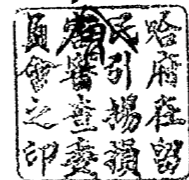 哈府在留
民引揚損
害審査委
員會之印